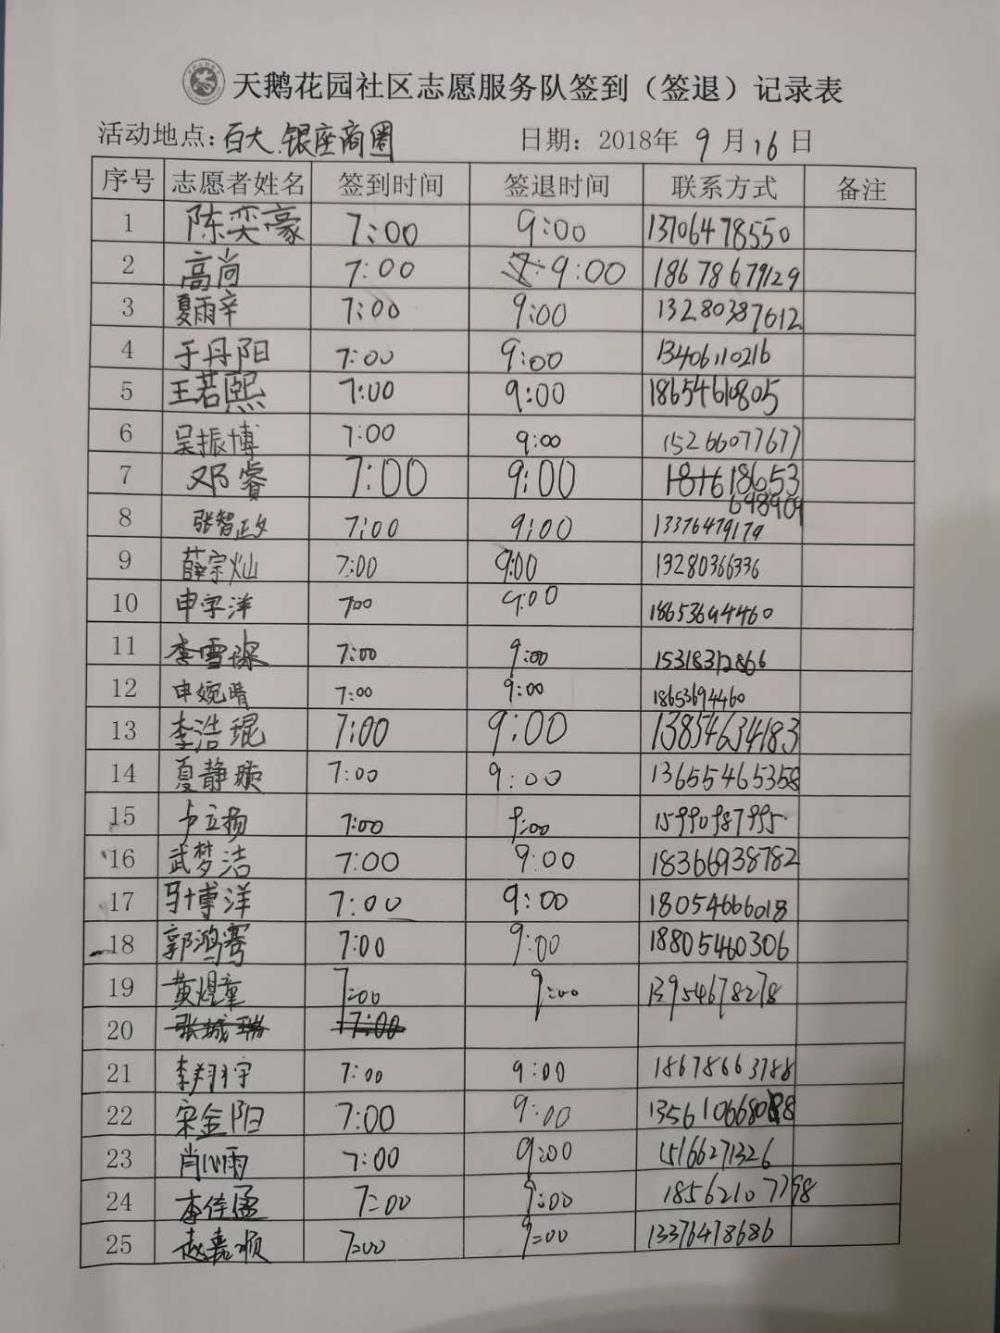 天鹅花园社区志愿服务队签到（签退）记录表
活动地点：百大.银座商圈 日期：2018年 9 月 16 日
序号 志愿者姓名 签到时间 签退时间 联系方式 备注
1 陈奕豪 7:00 9:00 13706478550
2 高尚 7:00 9:00 18678679129
3 夏雨辛 7:00 9:00 13280387612
4 于丹阳 7:00 9:00 13406110216
5 王若熙 7:00 9:00 18654610805
6 吴振博 7:00 9:00 15266077677
7 邓睿 7:00 9:00 18653
698909
8 张智政 7:00 9:00 13376479179
9 薛宗灿 7:00 9:00 13280366336
10 申字洋 7:00 9:00 18653694460
11 李雪琛 7:00 9:00 15318312866
12 申婉晴 7:00 9:00 18653694460
13 李浩琨 7:00 9:00 13854634183
14 夏静璇 7:00 9:00 13655465358
15 卢立扬 7:00 9:00 15990987995
16 武梦洁 7:00 9:00 18366938782
17 叶博洋 7:00 9:00 18054666018
18 郭鸿骞 7:00 9:00 18805460306
19 黄煜童 7:00 9:00 13954678278
20 7:00
21 李翔宇 7:00 9:00 18678663788
22 宋金阳 7:00 9:00
23 肖心雨 7:00 9:00 15166271326
24 李佳函 7:00 9:00 18562107798
25 赵嘉顺 7:00 9:00 13376478686